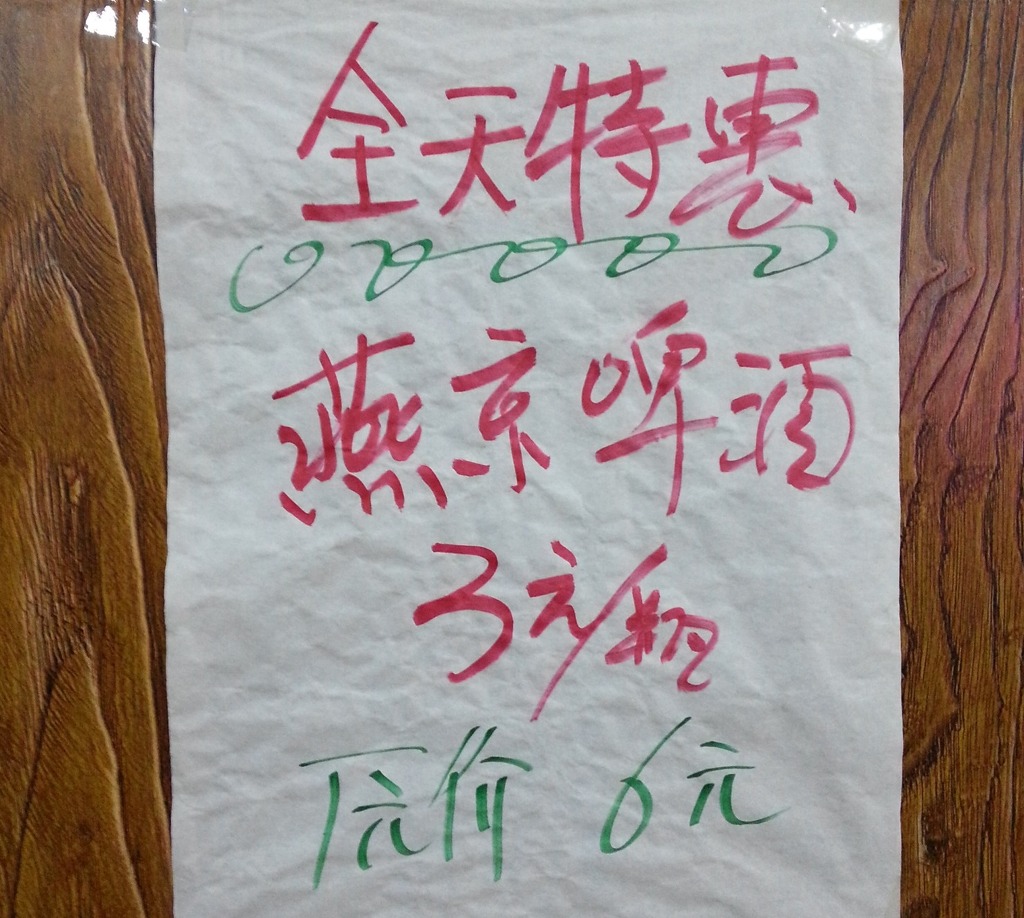 全天特惠
燕京啤酒
3元/瓶
原价 6元